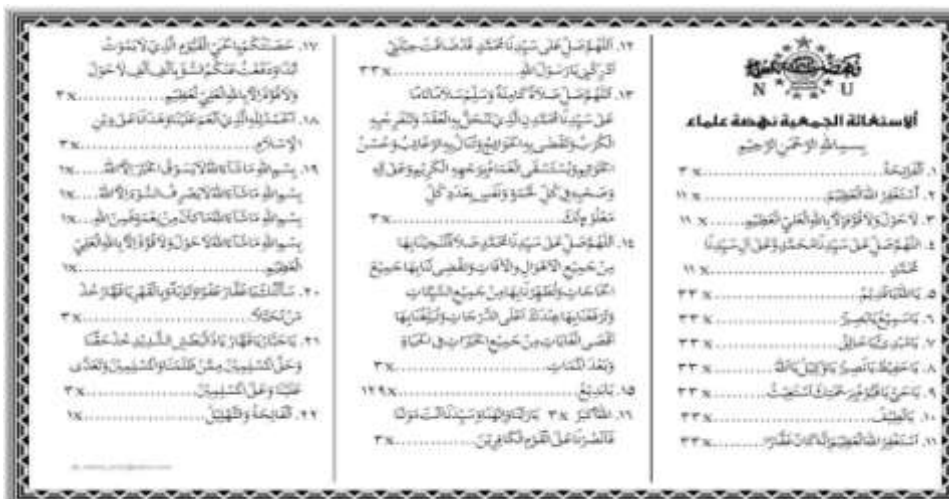 نهضة العلماء
N U
الاستغاثة الجمعية نهضة علماء
بِسْمِ اللهِ الرَّحْمٰنِ الرَّحِيْمِ
١. اَلْفَاتِحَةُ............ x ٣
٢. أَسْتَغْفِرُ اللهَ الْعَظِيْمَ............ x ١١
٣. لَاحَوْلَ وَلَا قُوَّةَ إِلَّا بِاللهِ الْعَلِيِّ الْعَظِيْمِ...... x ١١
٤. اَللّٰهُمَّ صَلِّ عَلَى سَيِّدِنَا مُحَمَّدٍ وَعَلَى اٰلِ سَيِّدِنَا
مُحَمَّدٍ............ x ١١
٥. يَا اَللهُ يَاقَدِيْمُ............ x ٣٣
٦. يَاسَمِيْعُ يَابَصِيْرُ............ x ٣٣
٧. يَامُبْدِئُ يَاخَالِقُ............ x ٣٣
٨. يَاحَفِيْظُ يَانَصِيْرُ يَاوَكِيْلُ يَا اَللهُ...... x ٣٣
٩. يَاحَيُّ يَاقَيُّوْمُ بِرَحْمَتِكَ أَسْتَغِيْثُ...... x ٣٣
١٠. يَالَطِيْفُ............ x ٣٣
١١. أَسْتَغْفِرُ اللهَ الْعَظِيْمَ إِنَّهُ كَانَ غَفَّارًا... x ٣٣
١٢. اَللّٰهُمَّ صَلِّ عَلَى سَيِّدِنَا مُحَمَّدٍ قَدْ ضَاقَتْ حِيْلَتِيْ
أَدْرِكْنِيْ يَارَسُوْلَ اللهِ............ x ٣٣
١٣. اَللّٰهُمَّ صَلِّ صَلَاةً كَامِلَةً وَسَلِّمْ سَلَامًا تَامًّا
عَلَى سَيِّدِنَا مُحَمَّدِنِ الَّذِيْ تَنْحَلُّ بِهِ الْعُقَدُ وَتَنْفَرِجُ بِهِ
الْكُرَبُ وَتُقْضَى بِهِ الْحَوَائِجُ وَتُنَالُ بِهِ الرَّغَائِبُ وَحُسْنُ
الْخَوَاتِمِ وَيُسْتَسْقَى الْغَمَامُ بِوَجْهِهِ الْكَرِيْمِ وَعَلَى اٰلِهِ
وَصَحْبِهِ فِيْ كُلِّ لَمْحَةٍ وَنَفَسٍ بِعَدَدِ كُلِّ
مَعْلُوْمٍ لَكَ............ x ٣
١٤. اَللّٰهُمَّ صَلِّ عَلَى سَيِّدِنَا مُحَمَّدٍ صَلَاةً تُنْجِيْنَا بِهَا
مِنْ جَمِيْعِ الْأَهْوَالِ وَالْاٰفَاتِ وَتَقْضِيْ لَنَا بِهَا جَمِيْعَ
الْحَاجَاتِ وَتُطَهِّرُنَا بِهَا مِنْ جَمِيْعِ السَّيِّئَاتِ
وَتَرْفَعُنَا بِهَا عِنْدَكَ أَعْلَى الدَّرَجَاتِ وَتُبَلِّغُنَا بِهَا
أَقْصَى الْغَايَاتِ مِنْ جَمِيْعِ الْخَيْرَاتِ فِي الْحَيَاةِ
وَبَعْدَ الْمَمَاتِ............ x ٣
١٥. يَابَدِيْعُ............ x ١٢٩
١٦. اَللهُ أَكْبَرُ x ٣ يَارَبَّنَا وَإِلٰهَنَا وَسَيِّدَنَا أَنْتَ مَوْلَانَا
فَانْصُرْنَا عَلَى الْقَوْمِ الْكَافِرِيْنَ............ x ٣
١٧. حَصَّنْتُكُمْ بِالْحَيِّ الْقَيُّوْمِ الَّذِيْ لَايَمُوْتُ
أَبَدًا وَدَفَعْتُ عَنْكُمُ السُّوْءَ بِأَلْفِ أَلْفِ لَاحَوْلَ
وَلَا قُوَّةَ إِلَّا بِاللهِ الْعَلِيِّ الْعَظِيْمِ............ x ٣
١٨. اَلْحَمْدُ لِلّٰهِ الَّذِيْ أَنْعَمَ عَلَيْنَا وَهَدَانَا عَلَى دِيْنِ
الْإِسْلَامِ............ x ٣
١٩. بِسْمِ اللهِ مَاشَاءَ اللهُ لَايَسُوْقُ الْخَيْرَ إِلَّا اللهُ.... x ١
بِسْمِ اللهِ مَاشَاءَ اللهُ لَايَصْرِفُ السُّوْءَ إِلَّا اللهُ.... x ١
بِسْمِ اللهِ مَاشَاءَ اللهُ مَاكَانَ مِنْ نِعْمَةٍ فَمِنَ اللهِ.... x ١
بِسْمِ اللهِ مَاشَاءَ اللهُ لَاحَوْلَ وَلَا قُوَّةَ إِلَّا بِاللهِ الْعَلِيِّ
الْعَظِيْمِ............ x ١
٢٠. سَأَلْتُكَ يَاغَفَّارُ عَفْوًا وَتَوْبَةً وَبِالْقَهْرِ يَاقَهَّارُ خُذْ
مَنْ تَحَيَّلَا............ x ٣
٢١. يَاجَبَّارُ يَاقَهَّارُ يَاذَا الْبَطْشِ الشَّدِيْدِ خُذْ حَقَّنَا
وَحَقَّ الْمُسْلِمِيْنَ مِمَّنْ ظَلَمَنَا وَالْمُسْلِمِيْنَ وَتَعَدَّى
عَلَيْنَا وَعَلَى الْمُسْلِمِيْنَ............ x ٣
٢٢. اَلْفَاتِحَةُ وَالتَّهْلِيْلُ............ x ١